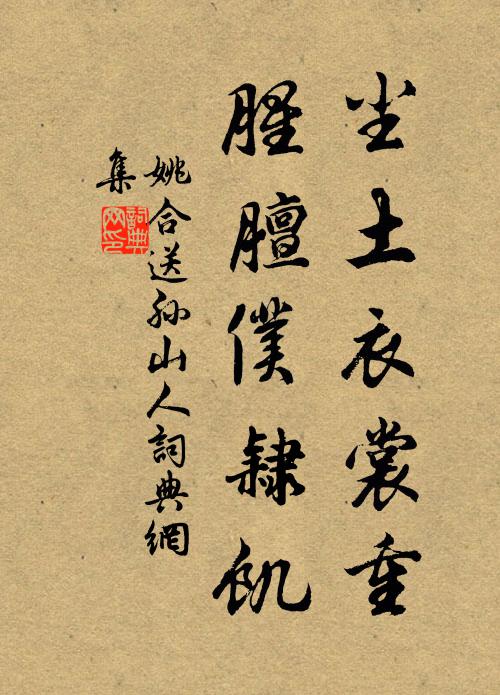 尘土衣裳重
腥膻僕隸飢
姚合送孙山人詞典網
集
詞典网印